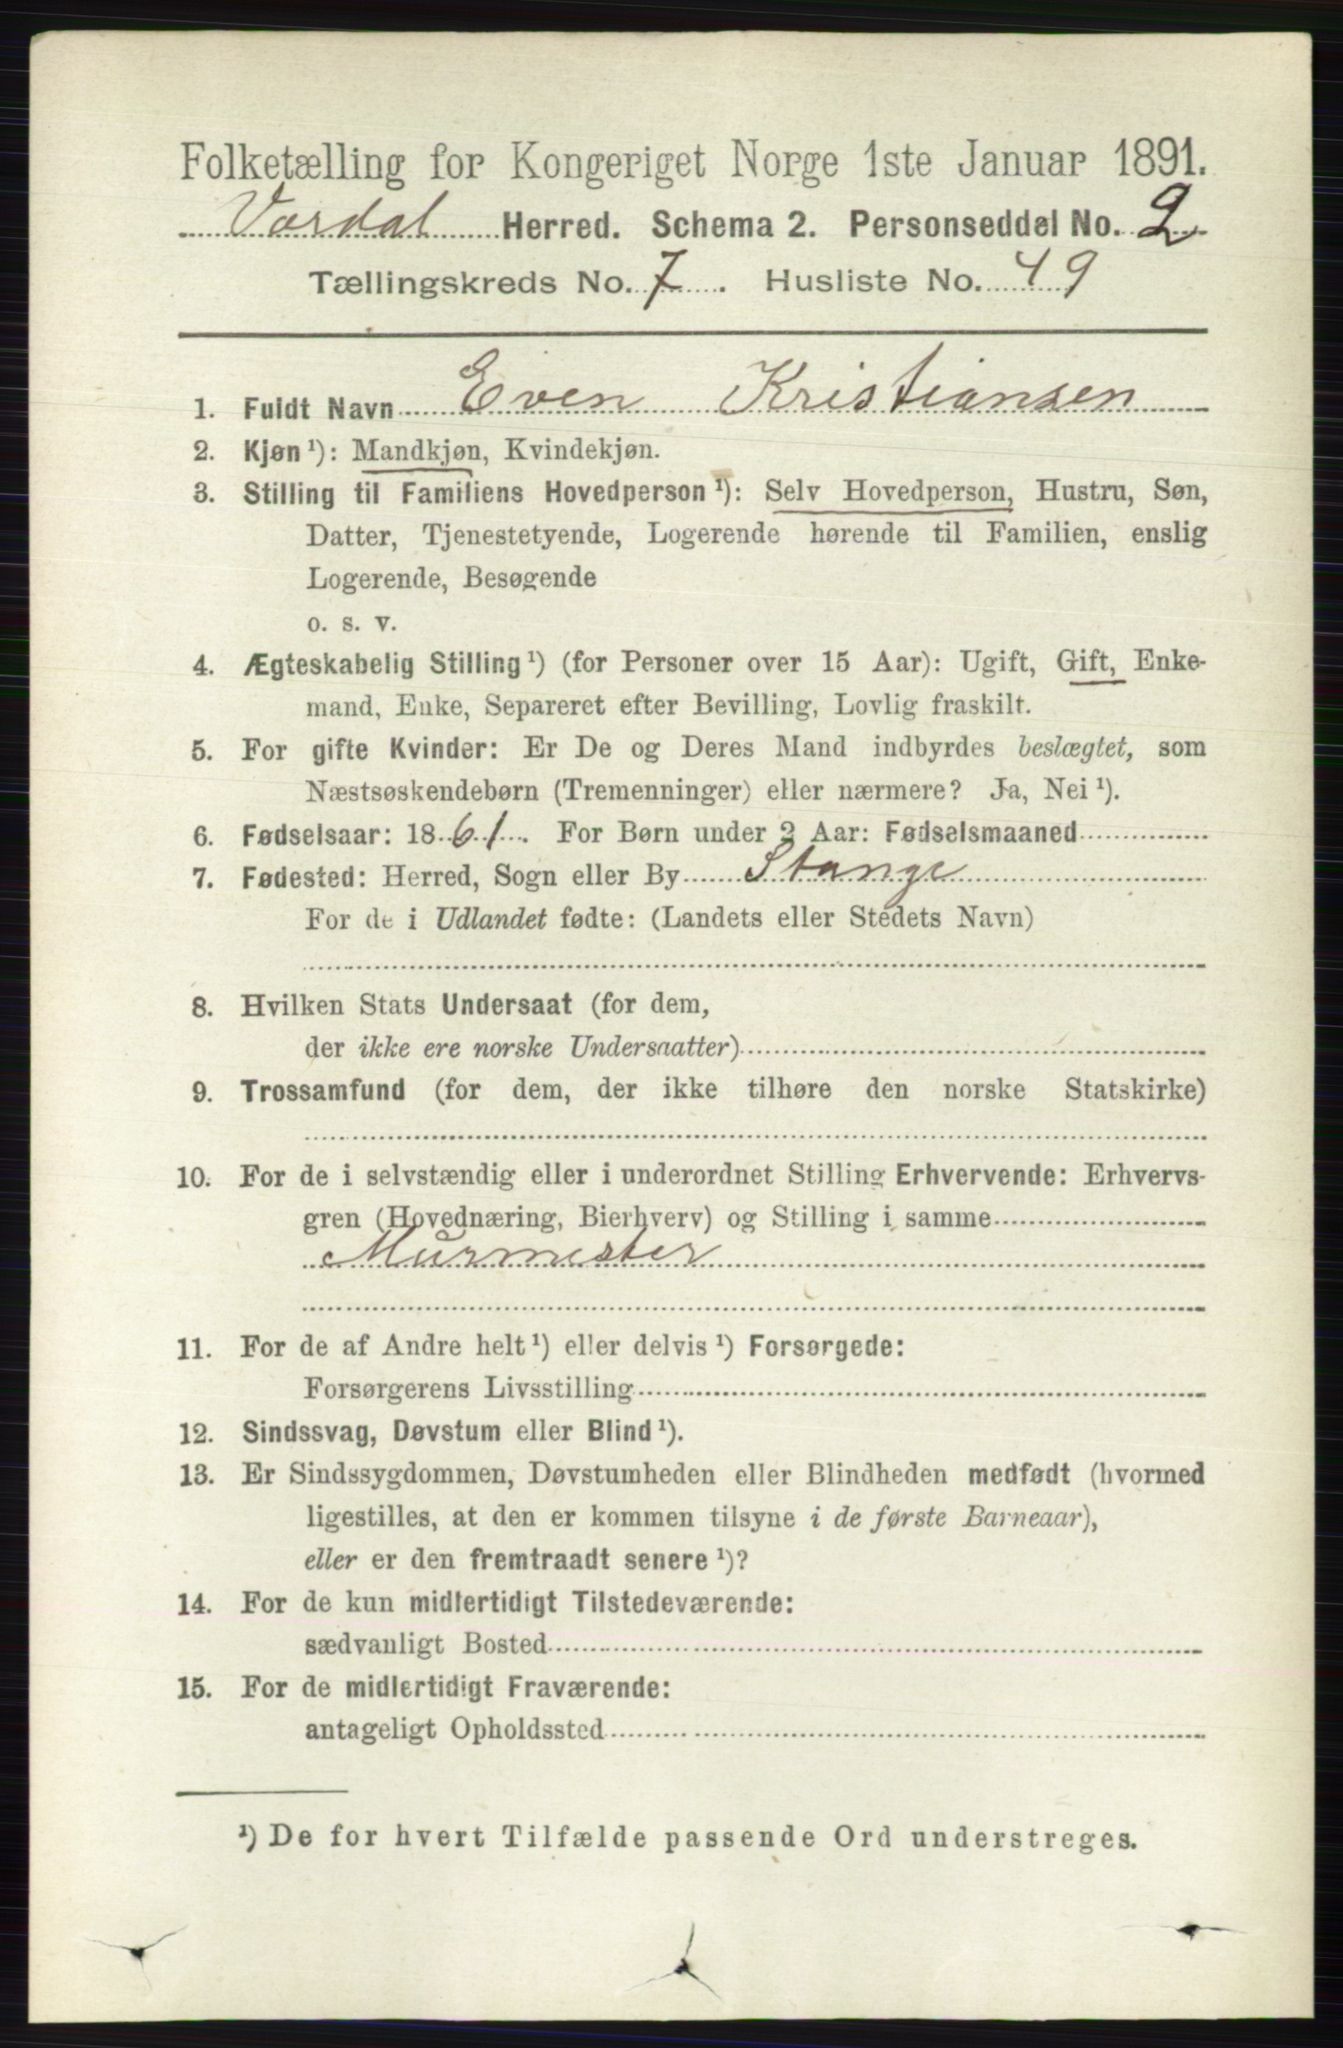 Folketælling for Kongeriget Norge 1ste Januar 1891.
Vardal Herred. Schema 2. Personseddel No. 2
Tællingskreds No. 7. Husliste No. 49
1. Fuldt Navn Even Kristiansen
2. Kjøn ¹): Mandkjøn, Kvindekjøn.
3. Stilling til Familiens Hovedperson ¹): Selv Hovedperson, Hustru, Søn,
Datter, Tjenestetyende, Logerende hørende til Familien, enslig
Logerende, Besøgende
o. s. v.
4. Ægteskabelig Stilling ¹) (for Personer over 15 Aar): Ugift, Gift, Enke-
mand, Enke, Separeret efter Bevilling, Lovlig fraskilt.
5. For gifte Kvinder: Er De og Deres Mand indbyrdes beslægtet, som
Næstsøskendebørn (Tremenninger) eller nærmere? Ja, Nei ¹).
6. Fødselsaar: 1861. For Børn under 2 Aar: Fødselsmaaned
7. Fødested: Herred, Sogn eller By Stange
For de i Udlandet fødte: (Landets eller Stedets Navn)
8. Hvilken Stats Undersaat (for dem,
der ikke ere norske Undersaatter)
9. Trossamfund (for dem, der ikke tilhøre den norske Statskirke)
10. For de i selvstændig eller i underordnet Stilling Erhvervende: Erhvervs-
gren (Hovednæring, Bierhverv) og Stilling i samme
Murmester
11. For de af Andre helt ¹) eller delvis ¹) Forsørgede:
Forsørgerens Livsstilling
12. Sindssvag, Døvstum eller Blind ¹).
13. Er Sindssygdommen, Døvstumheden eller Blindheden medfødt (hvormed
ligestilles, at den er kommen tilsyne i de første Barneaar),
eller er den fremtraadt senere ¹)?
14. For de kun midlertidigt Tilstedeværende:
sædvanligt Bosted
15. For de midlertidigt Fraværende:
antageligt Opholdssted
¹) De for hvert Tilfælde passende Ord understreges.